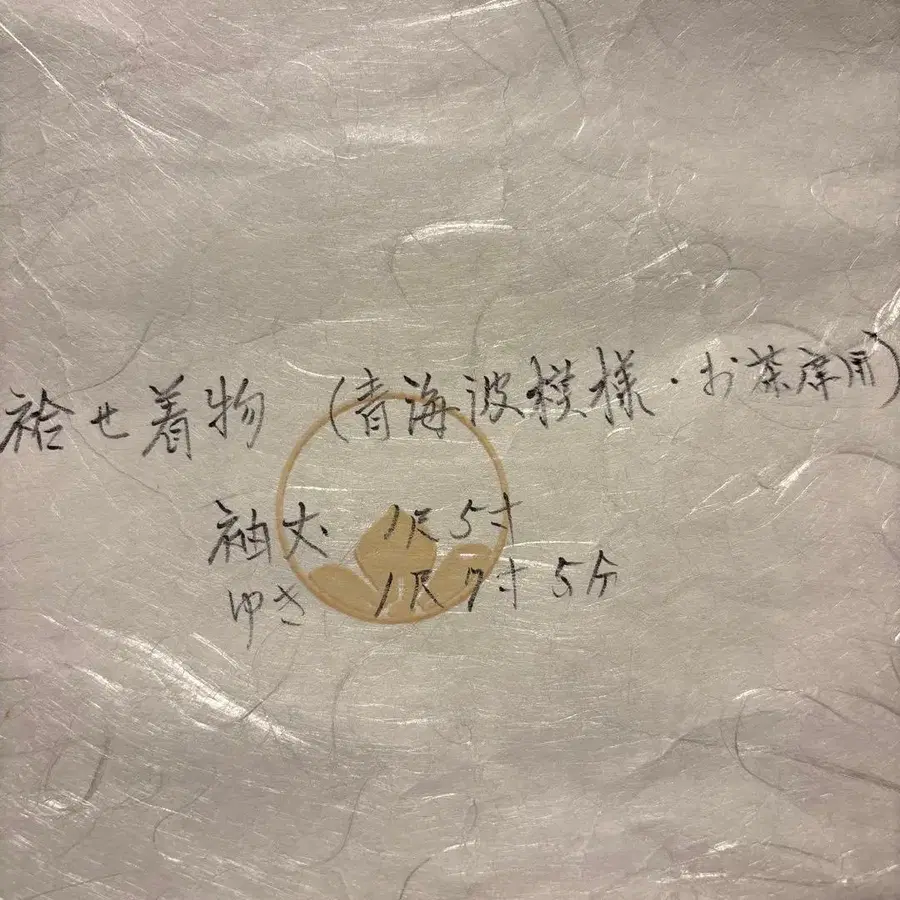 袷せ着物 (青海波模様・お茶席用)
袖丈 1尺5寸
ゆき 1尺7寸5分